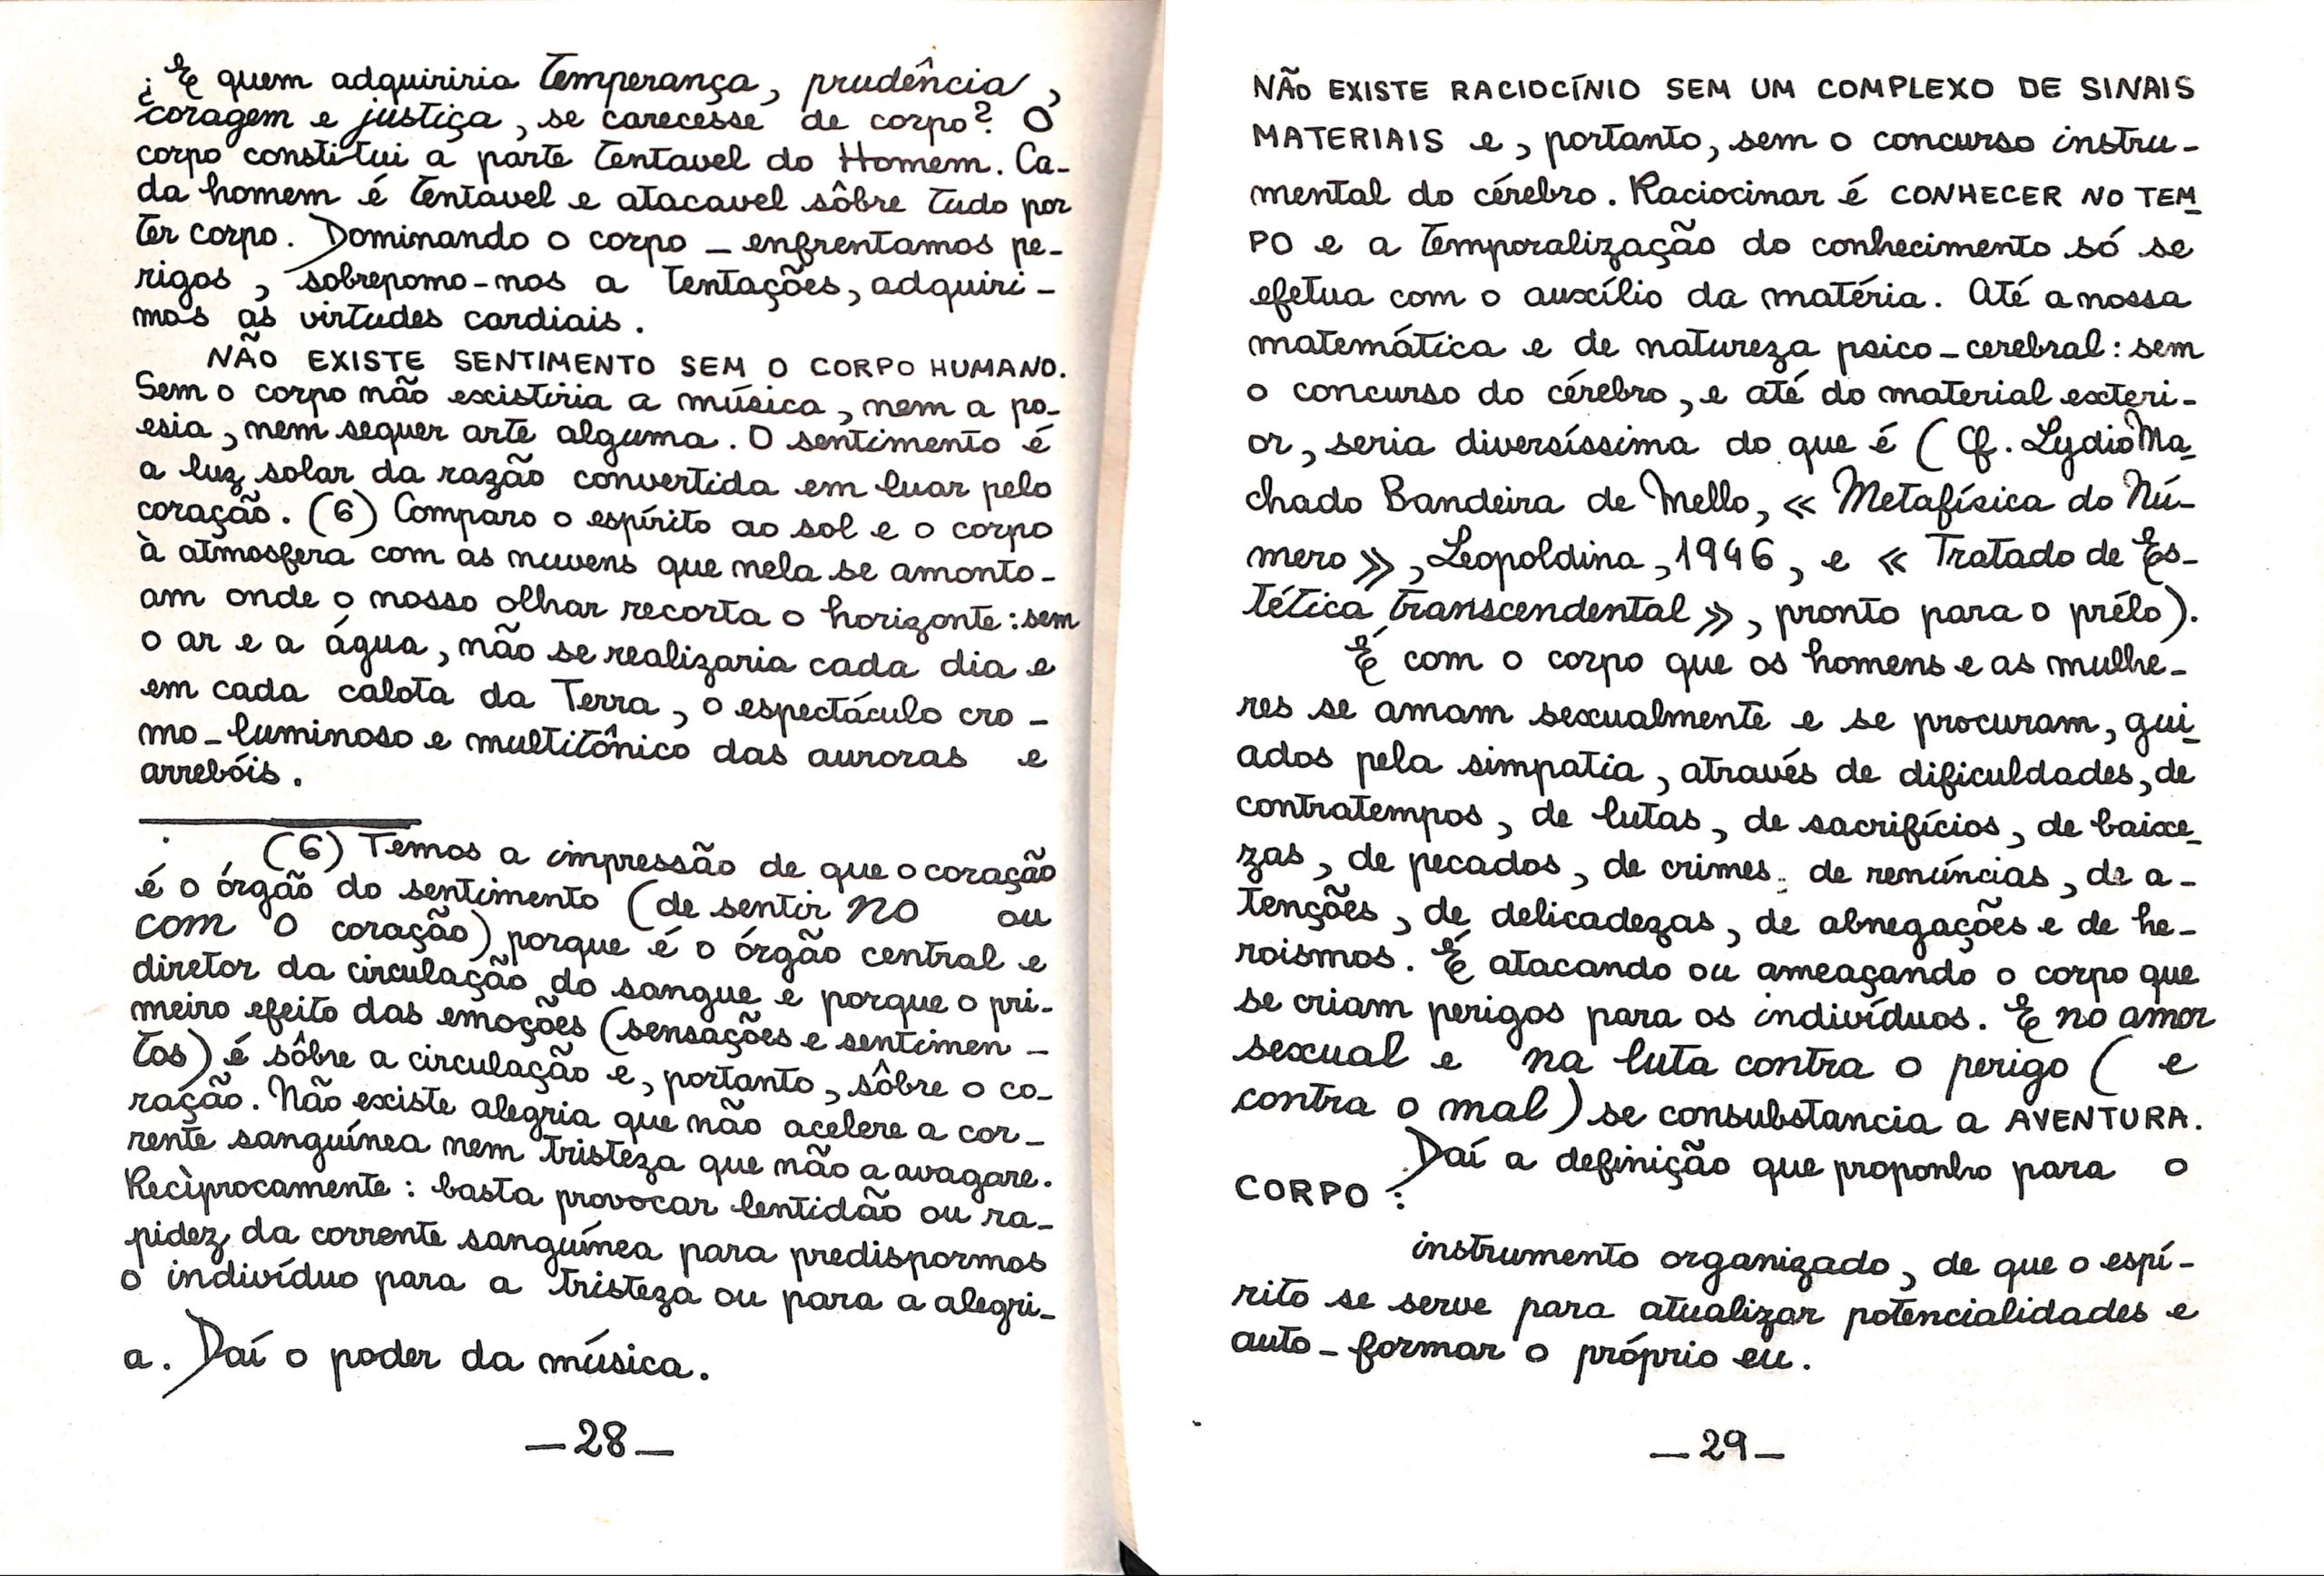 ¿E quem adquiriria temperança, prudência,
coragem e justiça, se carecesse de corpo? O
corpo constitui a parte tentavel do Homem. Ca-
da homem é tentavel e atacavel sôbre tudo por
ter corpo. Dominando o corpo — enfrentamos pe-
rigos, sobrepomo-nos a tentações, adquiri-
mos as virtudes cardiais.
NÃO EXISTE SENTIMENTO SEM O CORPO HUMANO.
Sem o corpo não existiria a música, nem a po-
esia, nem sequer arte alguma. O sentimento é
a luz solar da razão convertida em luar pelo
coração. (6) Comparo o espírito ao sol e o corpo
à atmosfera com as nuvens que nela se amonto-
am onde o nosso olhar recorta o horizonte: sem
o ar e a água, não se realizaria cada dia e
em cada calota da Terra, o espectáculo cro-
mo-luminoso e multitônico das auroras e
arrebóis.
(6) Temos a impressão de que o coração
é o órgão do sentimento (de sentir no ou
com o coração) porque é o órgão central e
diretor da circulação do sangue e porque o pri-
meiro efeito das emoções (sensações e sentimen-
tos) é sôbre a circulação e, portanto, sôbre o co-
ração. Não existe alegria que não acelere a cor-
rente sanguínea nem tristeza que não a avagare.
Recìprocamente: basta provocar lentidão ou ra-
pidez da corrente sanguínea para predispormos
o indivíduo para a tristeza ou para a alegri-
a. Daí o poder da música.
—28—
NÃO EXISTE RACIOCÍNIO SEM UM COMPLEXO DE SINAIS
MATERIAIS e, portanto, sem o concurso instru-
mental do cérebro. Raciocinar é CONHECER NO TEM-
PO e a temporalização do conhecimento só se
efetua com o auxílio da matéria. Até a nossa
matemática e de natureza psico-cerebral: sem
o concurso do cérebro, e até do material exteri-
or, seria diversíssima do que é (Cf. Lydio Ma-
chado Bandeira de Mello, « Metafísica do Nú-
mero », Leopoldina, 1946, e « Tratado de Es-
tética transcendental », pronto para o prélo).
É com o corpo que os homens e as mulhe-
res se amam sexualmente e se procuram, gui-
ados pela simpatia, através de dificuldades, de
contratempos, de lutas, de sacrifícios, de baixe-
zas, de pecados, de crimes, de renúncias, de a-
tenções, de delicadezas, de abnegações e de he-
roismos. É atacando ou ameaçando o corpo que
se criam perigos para os indivíduos. E no amor
sexual e na luta contra o perigo ( e
contra o mal) se consubstancia a AVENTURA.
Daí a definição que proponho para o
CORPO:
instrumento organizado, de que o espí-
rito se serve para atualizar potencialidades e
auto-formar o próprio eu.
—29—